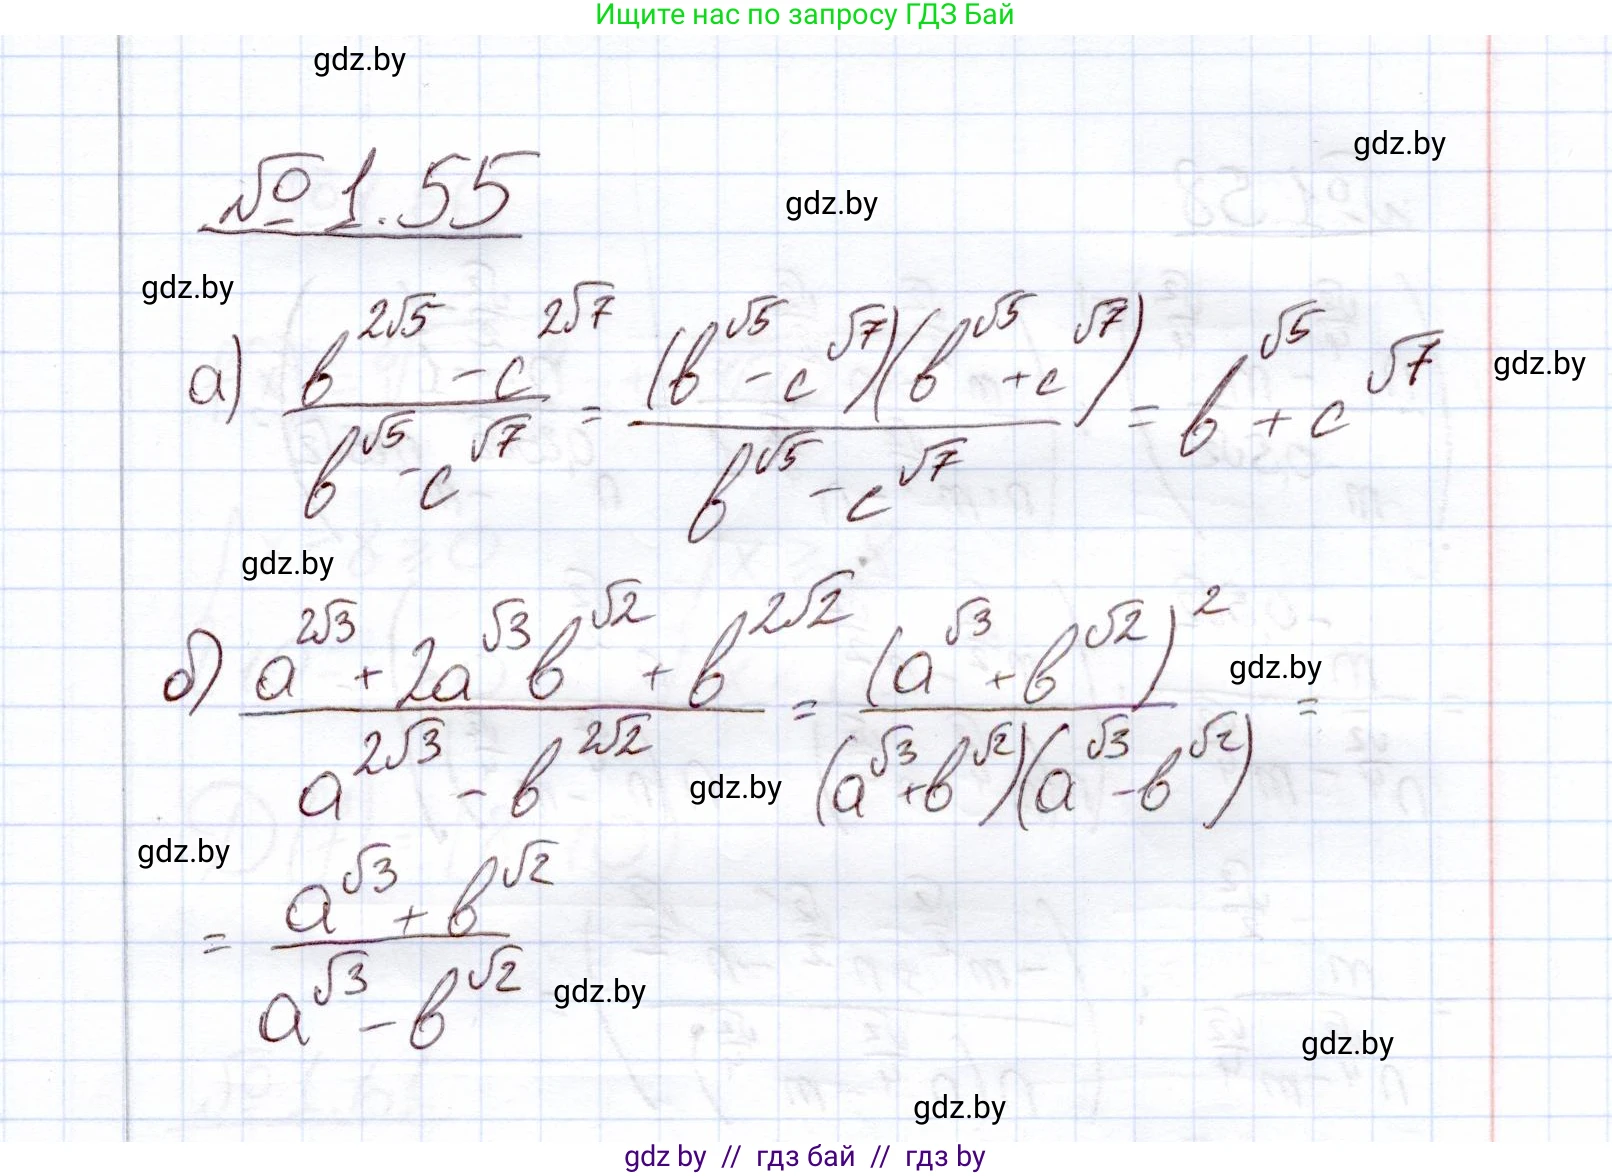 Ищите нас по запросу ГДЗ Бай
gdz.by
gdz.by
№ 1.55
gdz.by
gdz.by
а) (b^(2√5) - c^(2√7))/(b^√5 - c^√7) = ((b^√5 - c^√7)(b^√5 + c^√7))/(b^√5 - c^√7) = b^√5 + c^√7
gdz.by
gdz.by
б) (a^(2√3) + 2a^√3 b^√2 + b^(2√2))/(a^(2√3) - b^(2√2)) = (a^√3 + b^√2)^2/((a^√3 + b^√2)(a^√3 - b^√2)) =
gdz.by
gdz.by
gdz.by
= (a^√3 + b^√2)/(a^√3 - b^√2)
gdz.by
gdz.by
gdz.by
gdz by // гдз бай // гдз by